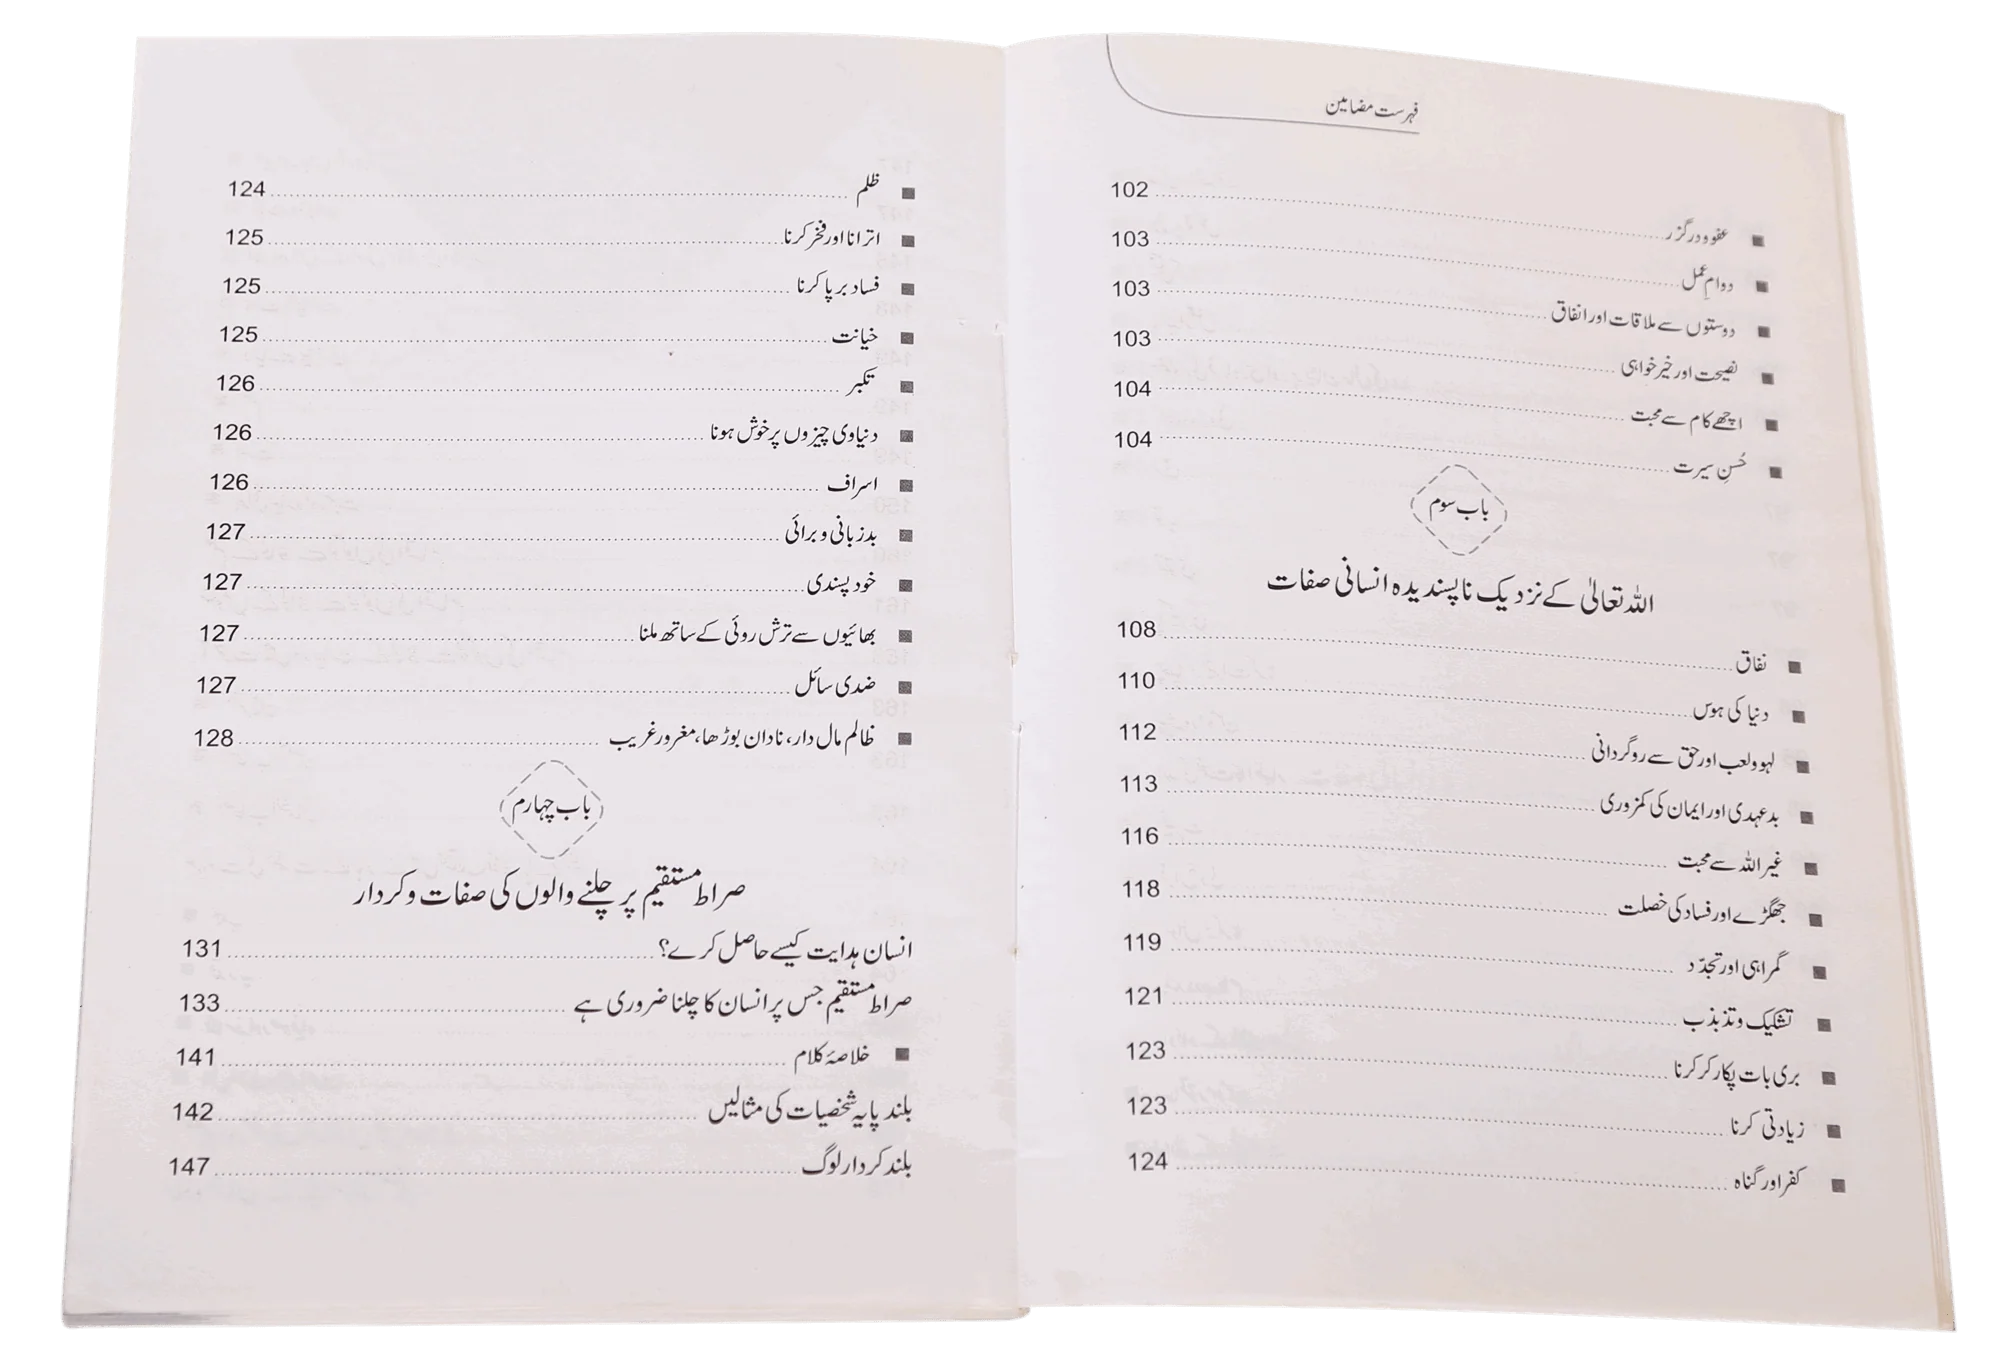 فہرست مضامین
■ عفو و درگزر 102
■ دوامِ عمل 103
■ دوستوں سے ملاقات اور انفاق 103
■ نصیحت اور خیر خواہی 103
■ اچھے کام سے محبت 104
■ حُسنِ سیرت 104
باب سوم
اللہ تعالیٰ کے نزدیک ناپسندیدہ انسانی صفات
■ نفاق 108
■ دنیا کی ہوس 110
■ لہو ولعب اور حق سے روگردانی 112
■ بدعہدی اور ایمان کی کمزوری 113
■ غیر اللہ سے محبت 116
■ جھگڑے اور فساد کی خصلت 118
■ گمراہی اور تجدّد 119
■ تشکیک و تذبذب 121
■ بری بات پکار کر کرنا 123
■ زیادتی کرنا 123
■ کفر اور گناہ 124
■ ظلم 124
■ اترانا اور فخر کرنا 125
■ فساد برپا کرنا 125
■ خیانت 125
■ تکبر 126
■ دنیاوی چیزوں پر خوش ہونا 126
■ اسراف 126
■ بدزبانی و برائی 127
■ خود پسندی 127
■ بھائیوں سے ترش روئی کے ساتھ ملنا 127
■ ضدی سائل 127
■ ظالم مال دار، نادان بوڑھا، مغرور غریب 128
باب چہارم
صراط مستقیم پر چلنے والوں کی صفات و کردار
انسان ہدایت کیسے حاصل کرے؟ 131
صراط مستقیم جس پر انسان کا چلنا ضروری ہے 133
■ خلاصۂ کلام 141
بلند پایہ شخصیات کی مثالیں 142
بلند کردار لوگ 147